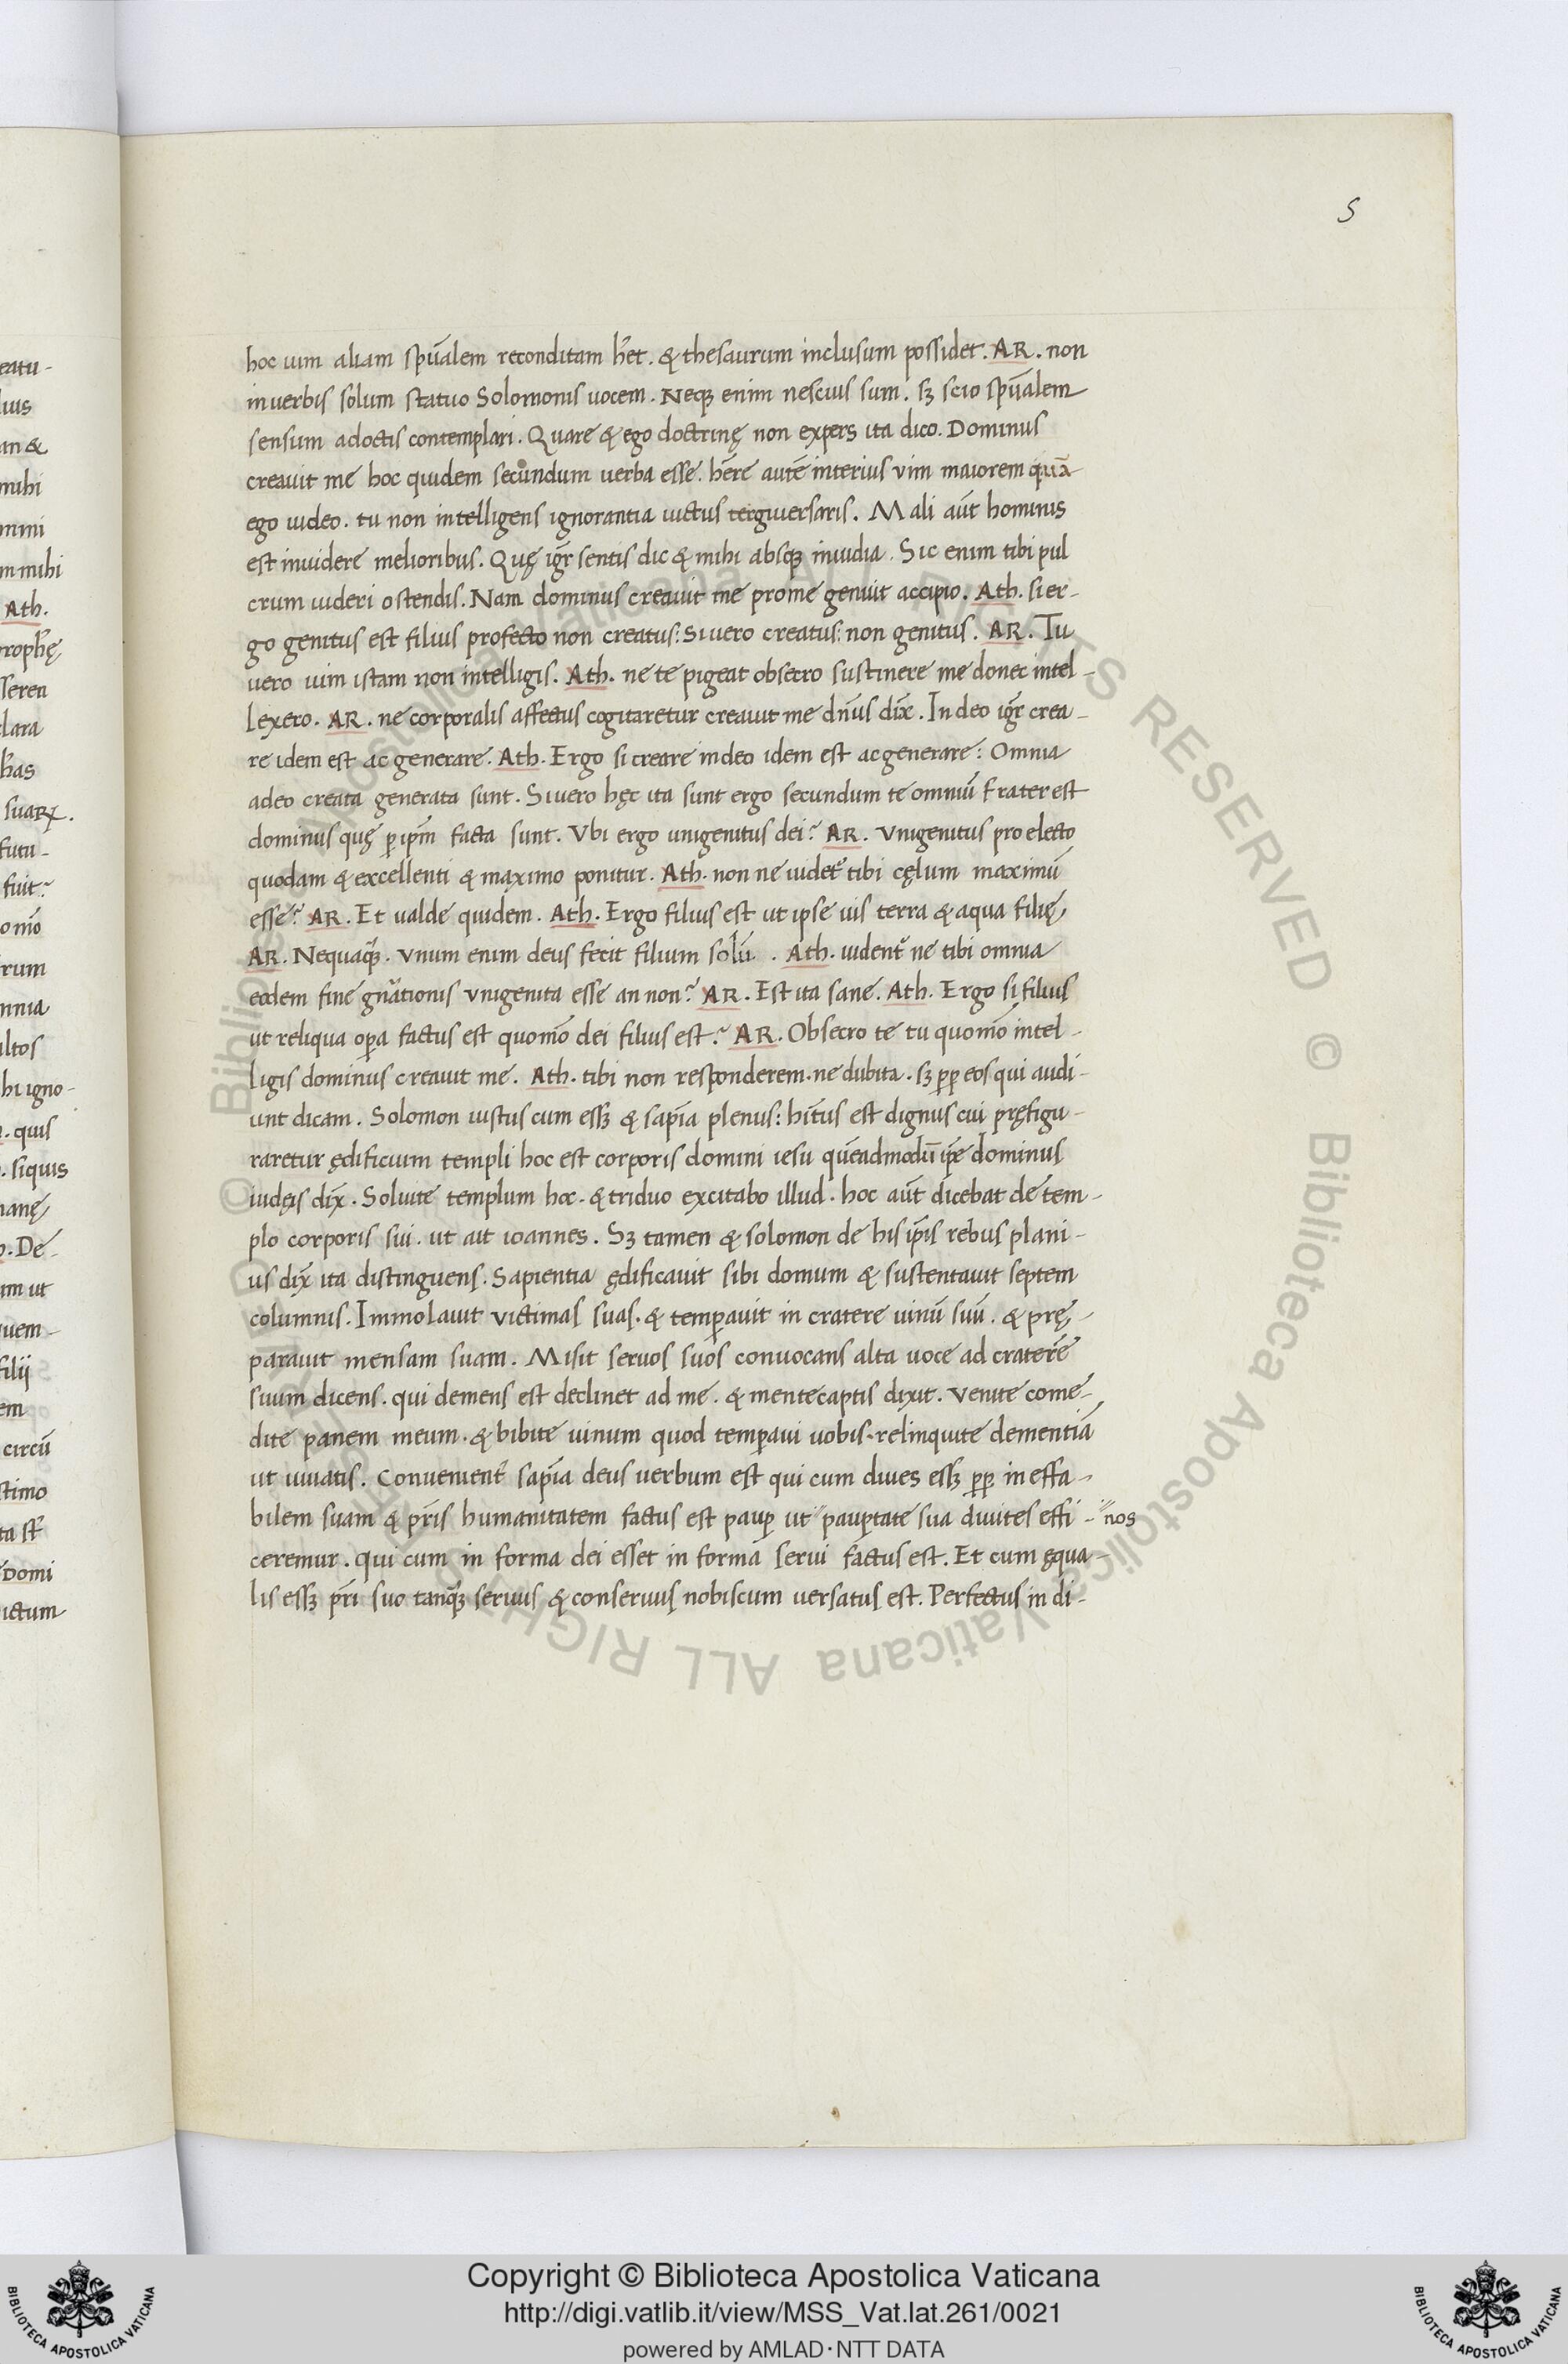 5
hoc uim aliam sp̄ualem reconditam h̄et. & thesaurum inclusum possidet. AR. non
in uerbis solum statuo Solomonis uocem. Neqꝫ enim nescius sum. sꝫ scio sp̄ualem
sensum a doctis contemplari. Quare & ego doctrinę non expers ita dico. Dominus
creauit me hoc quidem secundum uerba esse. hēre autē interius vim maiorem quā
ego uideo. tu non intelligens ignorantia uictus tergiuersaris. Mali aūt hominis
est inuidere melioribus. Quę igr̄ sentis dic & mihi absqꝫ inuidia. Sic enim tibi pul
crum uideri ostendis. Nam dominus creauit me pro me genuit accipio. Ath. si er-
go genitus est filius profecto non creatus: Si uero creatus: non genitus. AR. Tu
uero uim istam non intelligis. Ath. ne te pigeat obsecro sustinere me donec intel-
lexero. AR. ne corporalis affectus cogitaretur creauit me dn̄us dix̄. In deo igr̄ crea-
re idem est ac generare. Ath. Ergo si creare in deo idem est ac generare: Omnia
a deo creata generata sunt. Si uero hęc ita sunt ergo secundum te omniū frater est
dominus quę ꝑ ip̄m facta sunt. Vbi ergo unigenitus dei? AR. Vnigenitus pro electo
quodam & excellenti & maximo ponitur. Ath. non ne uidet᷑ tibi cęlum maximū
esse? AR. Et ualde quidem. Ath. Ergo filius est ut ipse uis terra & aqua filię,
AR. Nequaqꝫ. Vnum enim deus fecit filium solū. Ath. uident᷑ ne tibi omnia
eodem fine gn̄ationis vnigenita esse an non? AR. Est ita sane. Ath. Ergo si filius
ut reliqua oꝑa factus est quomō dei filius est? AR. Obsecro te tu quomō intel-
ligis dominus creauit me. Ath. tibi non responderem. ne dubita. sꝫ ꝑꝑ eos qui audi-
unt dicam. Solomon iustus cum essꝫ & sap̄ia plenus: hītus est dignus cui pręfigu-
raretur ędificium templi hoc est corporis domini iesu quēadmodū ip̄e dominus
iudęis dix̄. Soluite templum hoc. & triduo excitabo illud. hoc aūt dicebat de tem-
plo corporis sui. ut ait ioannes. Sꝫ tamen & solomon de his ip̄is rebus plani-
us dix̄ ita distinguens. Sapientia ędificauit sibi domum & sustentauit septem
columnis. Immolauit victimas suas. & temꝑauit in cratere uinū suū. & prę-
parauit mensam suam. Misit seruos suos conuocans alta uoce ad craterē
suum dicens. qui demens est declinet ad me. & mentecaptis dixit. Venite come-
dite panem meum. & bibite uinum quod temꝑaui uobis. relinquite dementiā
ut uiuatis. Conuenient᷑ sap̄ia deus uerbum est qui cum diues essꝫ ꝑꝑ ineffa-
bilem suam & pr̄is humanitatem factus est pauꝑ ut〃 pauꝑtate sua diuites effi- 〃nos
ceremur. qui cum in forma dei esset in formā serui factus est. Et cum ęqua-
lis essꝫ pr̄i suo tanqꝫ seruus & conseruus nobiscum uersatus est. Perfectus in di-
Copyright © Biblioteca Apostolica Vaticana
http://digi.vatlib.it/view/MSS_Vat.lat.261/0021
powered by AMLAD·NTT DATA